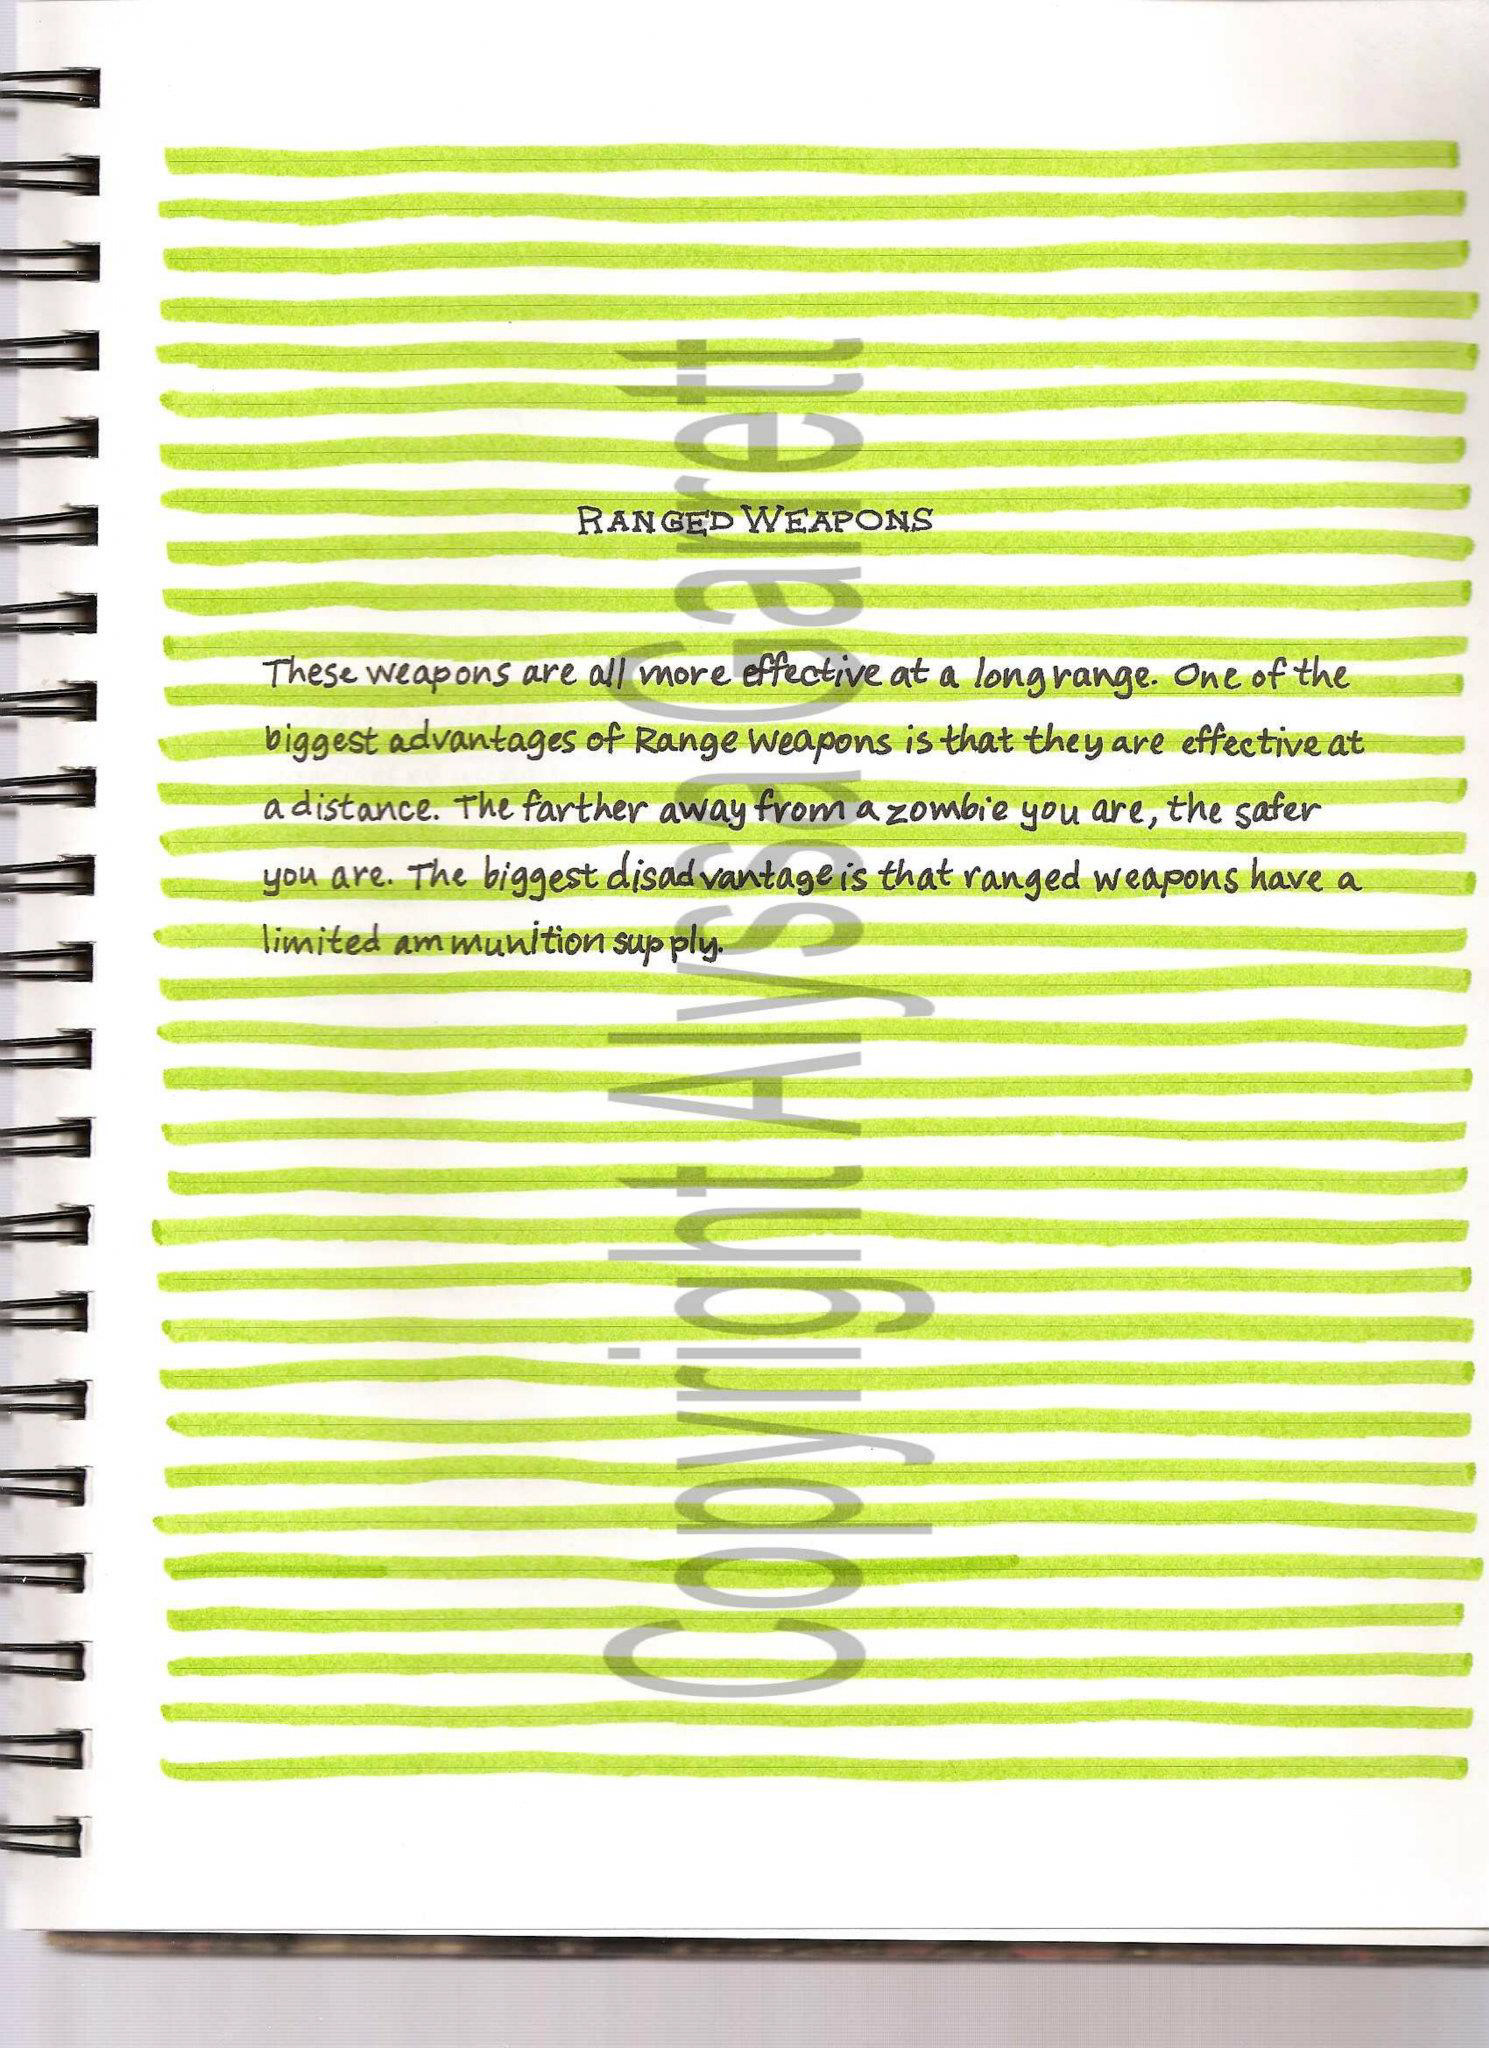 RANGED WEAPONS
These weapons are all more effective at a long range. One of the
biggest advantages of Range Weapons is that they are effective at
a distance. The farther away from a zombie you are, the safer
you are. The biggest disadvantage is that ranged weapons have a
limited ammunition supply.
Copyright Alyssa Garett